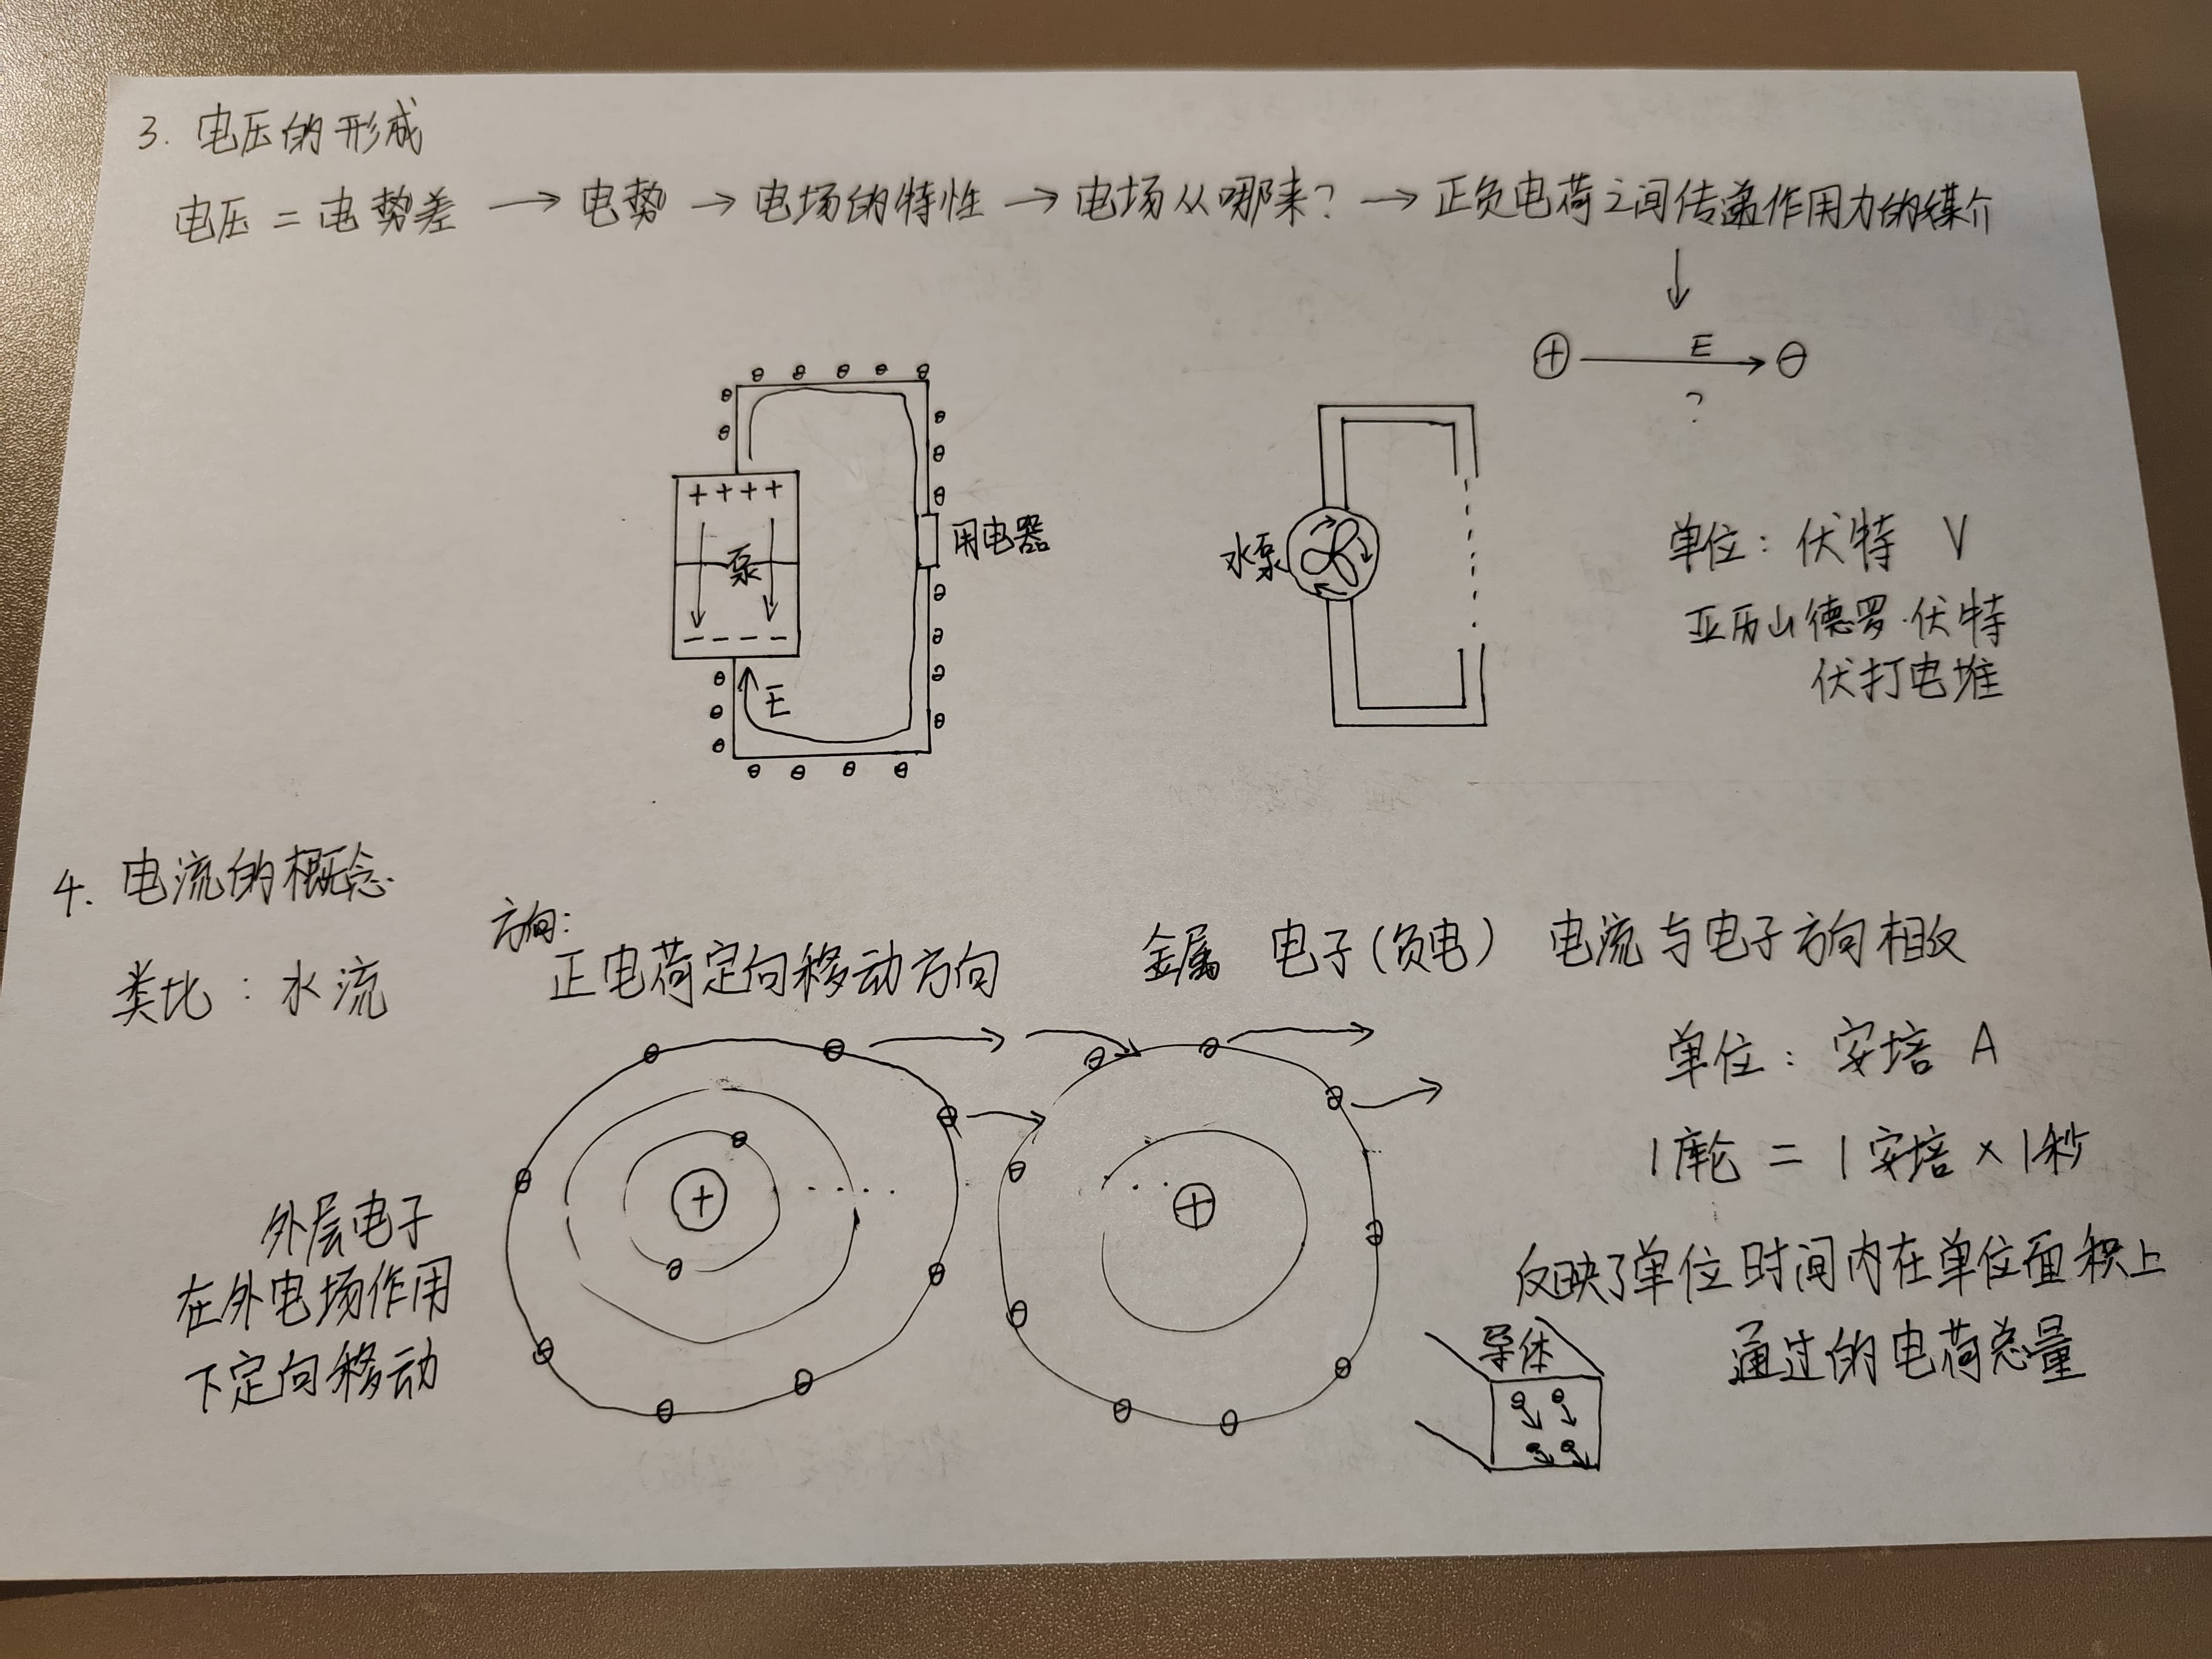 3. 电压的形成
电压 = 电势差 → 电势 → 电场的特性 → 电场从哪来? → 正负电荷之间传递作用力的媒介
↓
⊕ → ⊖
E
?
++++
泵
----
E
用电器
水泵
单位: 伏特 V
亚历山德罗·伏特
伏打电堆
4. 电流的概念.
类比: 水流
方向:
正电荷定向移动方向
金属 电子(负电) 电流与电子方向相反
外层电子
在外电场作用
下定向移动
单位: 安培 A
1库轮 = 1安培 × 1秒
反映了单位时间内在单位面积上
通过的电荷总量
导体